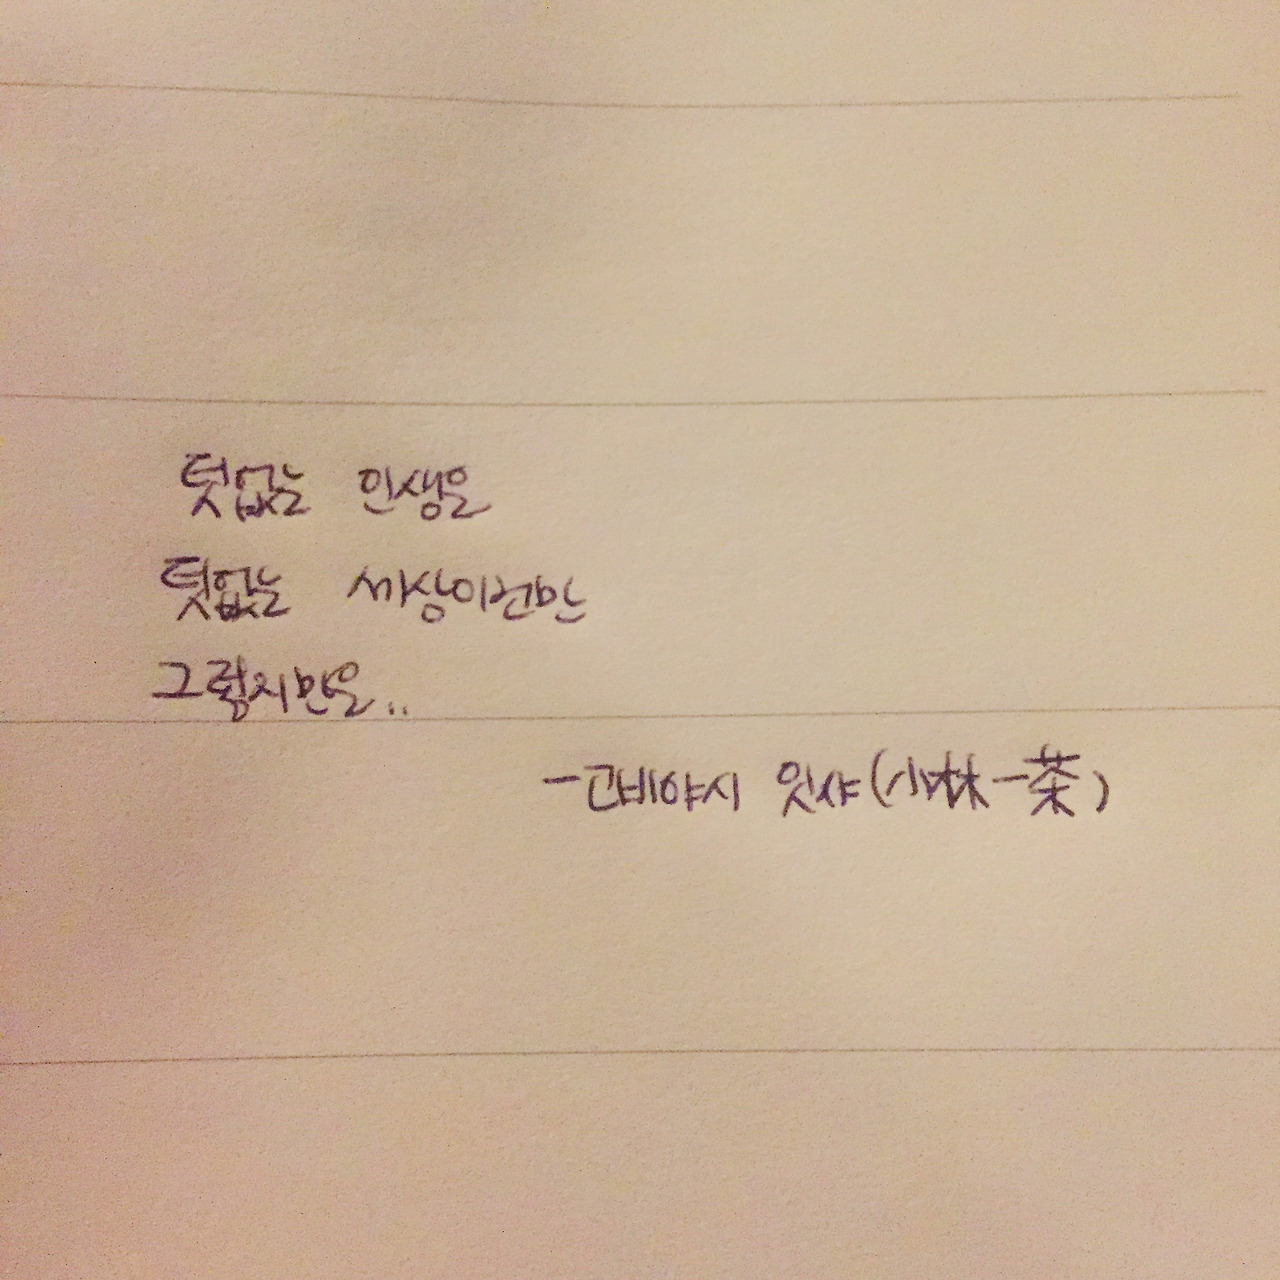 덧없는 인생은
덧없는 세상이건만
그렇지만은..
-고바야시 잇샤(小林一茶)